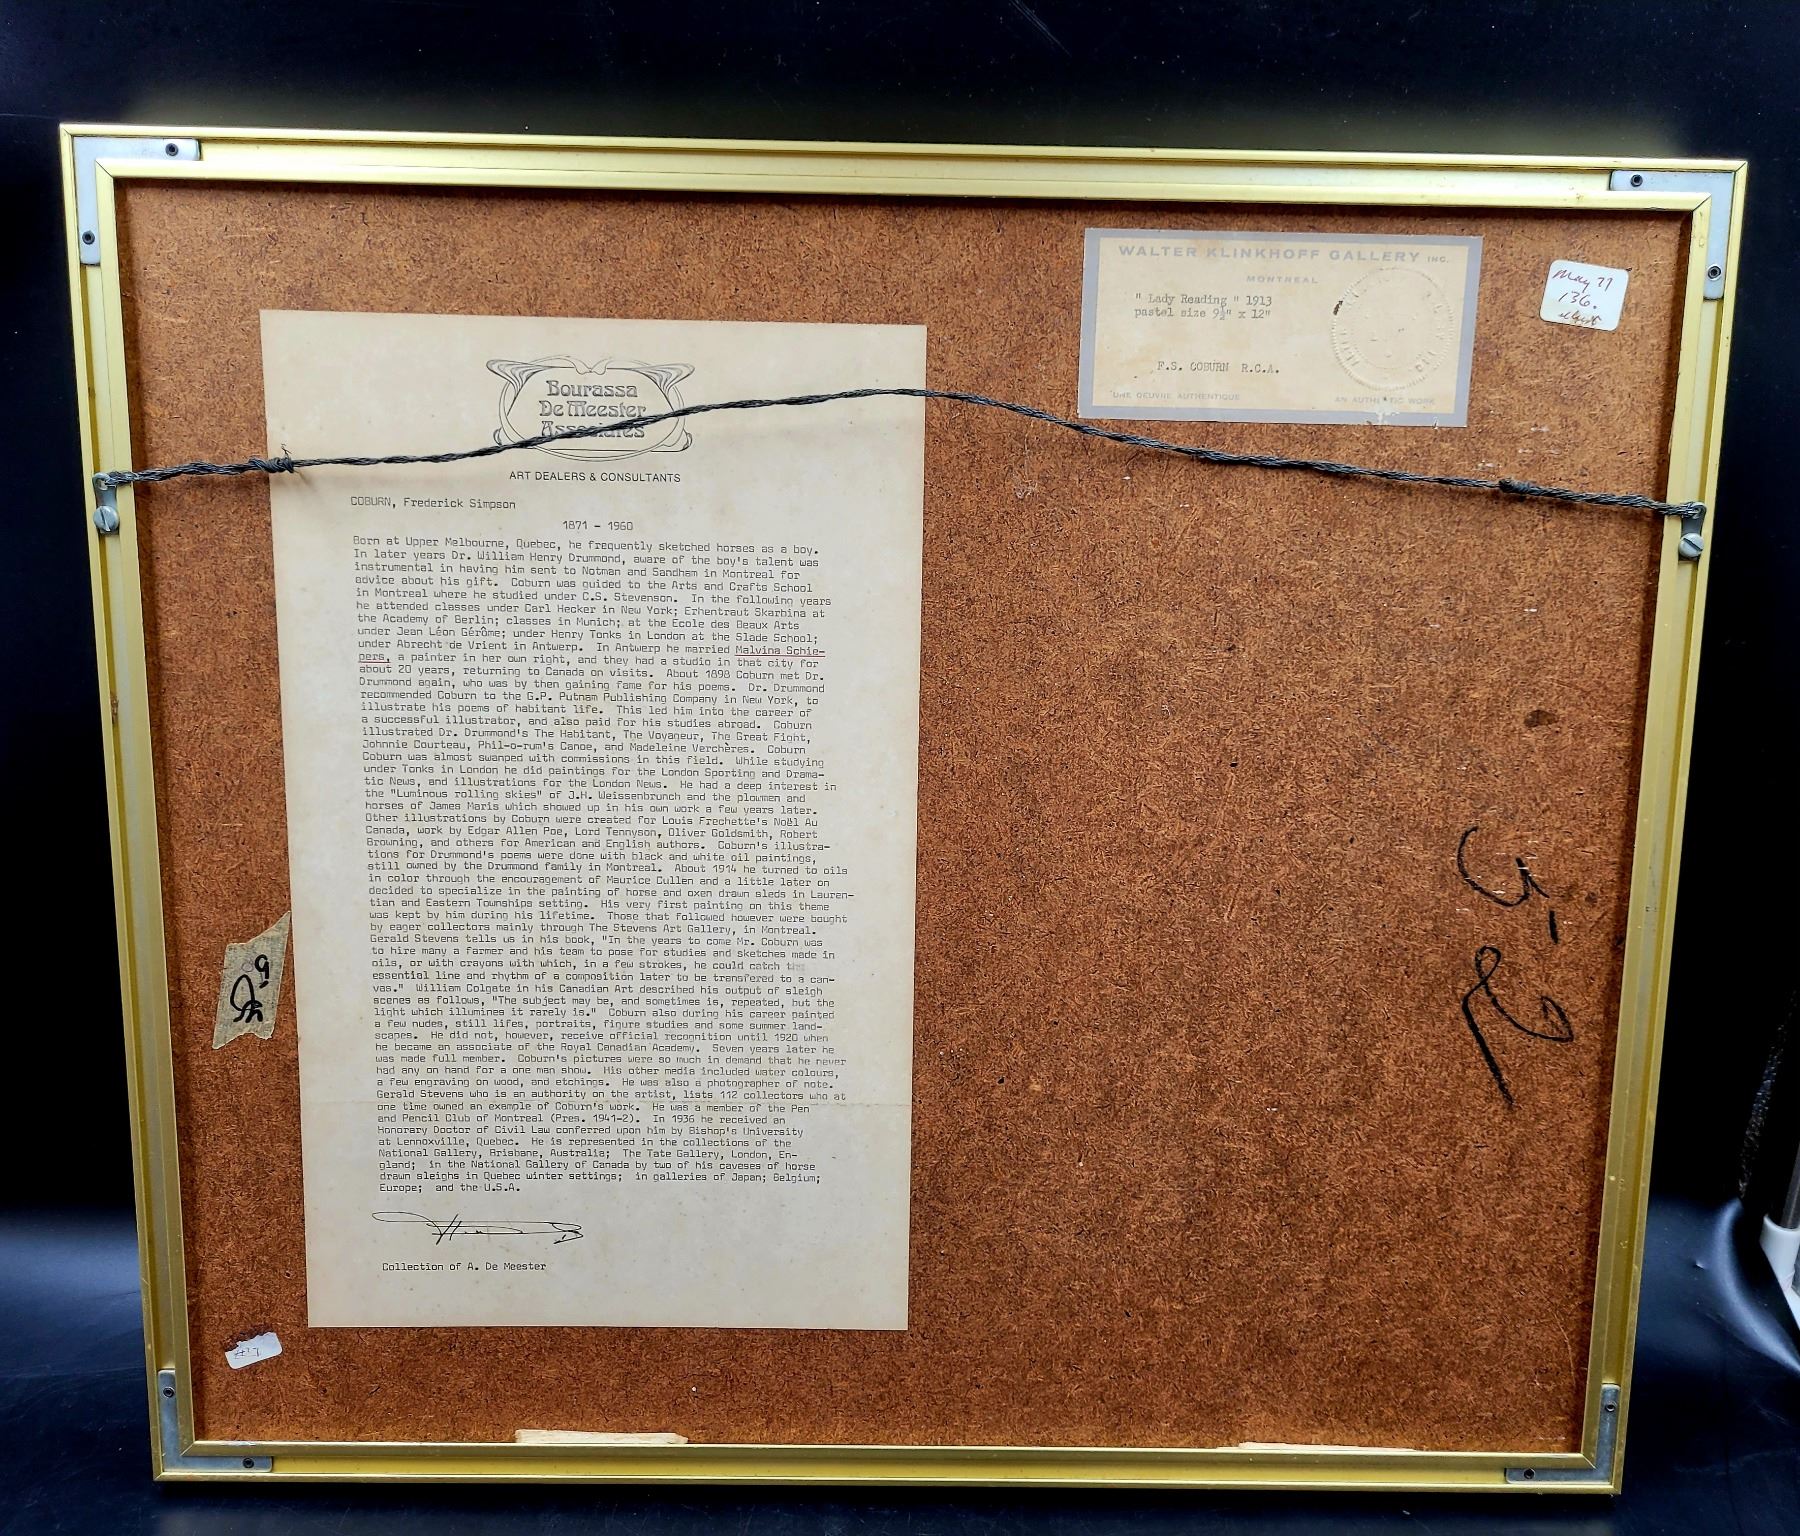 WALTER KLINKHOFF GALLERY INC.
MONTREAL
" Lady Reading " 1913
pastel size 9½" x 12"
F.S. COBURN R.C.A.
UNE OEUVRE AUTHENTIQUE
AN AUTHENTIC WORK
May 77
136.
Bourassa
De Meester
Associates
ART DEALERS & CONSULTANTS
COBURN, Frederick Simpson
1871 - 1960
Born at Upper Melbourne, Quebec, he frequently sketched horses as a boy.
In later years Dr. William Henry Drummond, aware of the boy's talent was
instrumental in having him sent to Notman and Sandham in Montreal for
advice about his gift. Coburn was guided to the Arts and Crafts School
in Montreal where he studied under C.S. Stevenson. In the following years
he attended classes under Carl Hecker in New York; Erhentraut Skarbina at
the Academy of Berlin; classes in Munich; at the Ecole des Beaux Arts
under Jean Léon Gérôme; under Henry Tonks in London at the Slade School;
under Abrecht de Vrient in Antwerp. In Antwerp he married Malvina Schie-
pers, a painter in her own right, and they had a studio in that city for
about 20 years, returning to Canada on visits. About 1898 Coburn met Dr.
Drummond again, who was by then gaining fame for his poems. Dr. Drummond
recommended Coburn to the G.P. Putnam Publishing Company in New York, to
illustrate his poems of habitant life. This led him into the career of
a successful illustrator, and also paid for his studies abroad. Coburn
illustrated Dr. Drummond's The Habitant, The Voyageur, The Great Fight,
Johnnie Courteau, Phil-o-rum's Canoe, and Madeleine Verchères. Coburn
Coburn was almost swamped with commissions in this field. While studying
under Tonks in London he did paintings for the London Sporting and Drama-
tic News, and illustrations for the London News. He had a deep interest in
the "Luminous rolling skies" of J.H. Weissenbrunch and the plowmen and
horses of James Maris which showed up in his own work a few years later.
Other illustrations by Coburn were created for Louis Frechette's Noël Au
Canada, work by Edgar Allen Poe, Lord Tennyson, Oliver Goldsmith, Robert
Browning, and others for American and English authors. Coburn's illustra-
tions for Drummond's poems were done with black and white oil paintings,
still owned by the Drummond family in Montreal. About 1914 he turned to oils
in color through the encouragement of Maurice Cullen and a little later on
decided to specialize in the painting of horse and oxen drawn sleds in Lauren-
tian and Eastern Townships setting. His very first painting on this theme
was kept by him during his lifetime. Those that followed however were bought
by eager collectors mainly through The Stevens Art Gallery, in Montreal.
Gerald Stevens tells us in his book, "In the years to come Mr. Coburn was
to hire many a farmer and his team to pose for studies and sketches made in
oils, or with crayons with which, in a few strokes, he could catch the
essential line and rhythm of a composition later to be transfered to a can-
vas." William Colgate in his Canadian Art described his output of sleigh
scenes as follows, "The subject may be, and sometimes is, repeated, but the
light which illumines it rarely is." Coburn also during his career painted
a few nudes, still lifes, portraits, figure studies and some summer land-
scapes. He did not, however, receive official recognition until 1920 when
he became an associate of the Royal Canadian Academy. Seven years later he
was made full member. Coburn's pictures were so much in demand that he never
had any on hand for a one man show. His other media included water colours,
a few engraving on wood, and etchings. He was also a photographer of note.
Gerald Stevens who is an authority on the artist, lists 112 collectors who at
one time owned an example of Coburn's work. He was a member of the Pen
and Pencil Club of Montreal (Pres. 1941-2). In 1936 he received an
Honorary Doctor of Civil Law conferred upon him by Bishop's University
at Lennoxville, Quebec. He is represented in the collections of the
National Gallery, Brisbane, Australia; The Tate Gallery, London, En-
gland; in the National Gallery of Canada by two of his caveses of horse
drawn sleighs in Quebec winter settings; in galleries of Japan; Belgium;
Europe; and the U.S.A.
Collection of A. De Meester